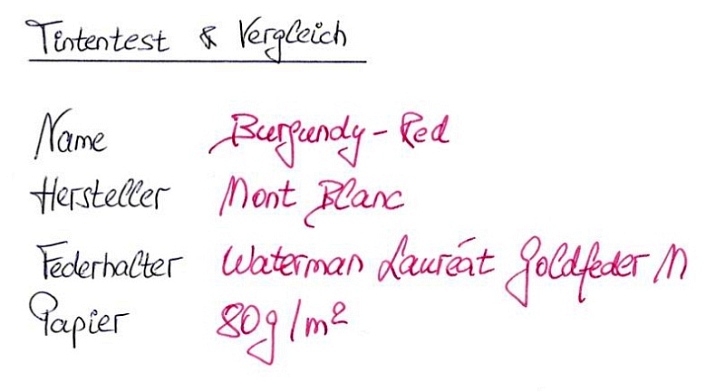 Tintentest & Vergleich
Name Burgundy-Red
Hersteller Mont Blanc
Federhalter Waterman Laureát Goldfeder M
Papier 80g/m²